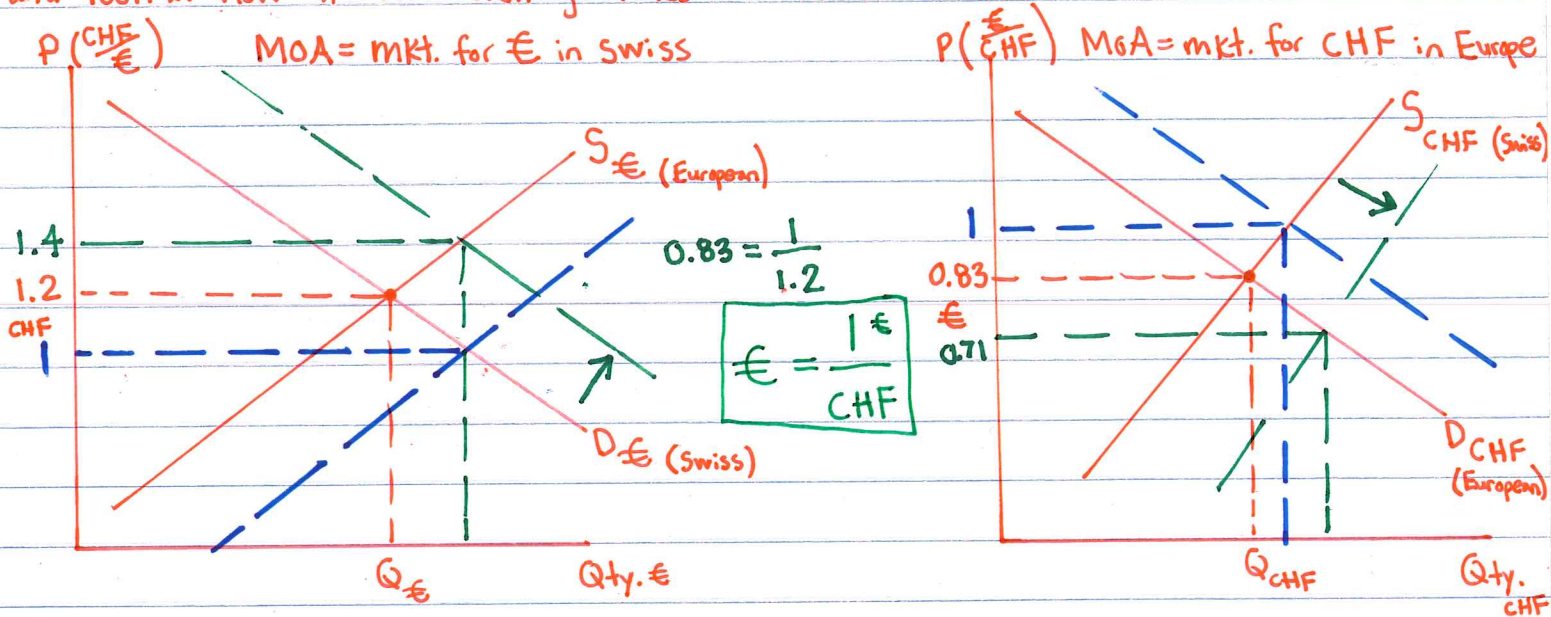 P (CHF/€) MOA = mkt. for € in Swiss
S€ (European)
1.4
1.2
CHF
1
0.83 = 1/1.2
€ = 1€/CHF
D€ (Swiss)
Q€
Qty. €
P (€/CHF) MOA = mkt. for CHF in Europe
S CHF (Swiss)
1
0.83
€
0.71
D CHF
(European)
Q CHF
Qty.
CHF